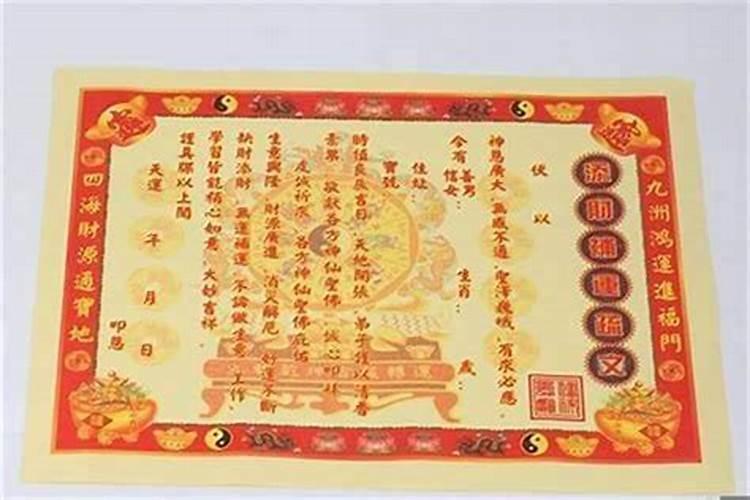 九洲鴻運進福門
添財補運疏文
伏以
神恩廣大 無感不通 聖澤巍峨 有求必應
今有善男信女： 生肖： 歲：
住址：
寶號
時值良辰吉日 天地開張 弟子謹以清香
素果 敬獻各方神仙聖佛 誠心叩拜
虔誠祈求 各方神仙聖佛庇佑
生意興隆 財源廣進 消災解厄 好運不斷
缺財添財 無運補運 不論做生意 工作、
學習皆能稱心如意 大妙吉祥
謹具疏以上聞
天運 年 月 日
叩恩
四海財源通寶地